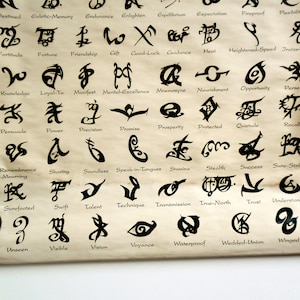 Eidetic-Memory Endurance Enlighten Equilibrium Expectation Fireproof Flexibility
Fortitude Fortune Friendship Gift Good-Luck Guidance Heal Heightened-Speed
Knowledge Loyal-To Manifest Mental-Excellence Mnemosyne Nourishment Opportunity
Permanence Power Precision Promise Prosperity Protected Quietude
Mourning Sharing Soundless Speak-in-Tongues Stamina Stealth Success Sure-Strike
Surefooted Swift Talent Technique Transmission True-North Trust Understanding
Unseen Visible Vision Voyance Waterproof Wedded-Union Winged